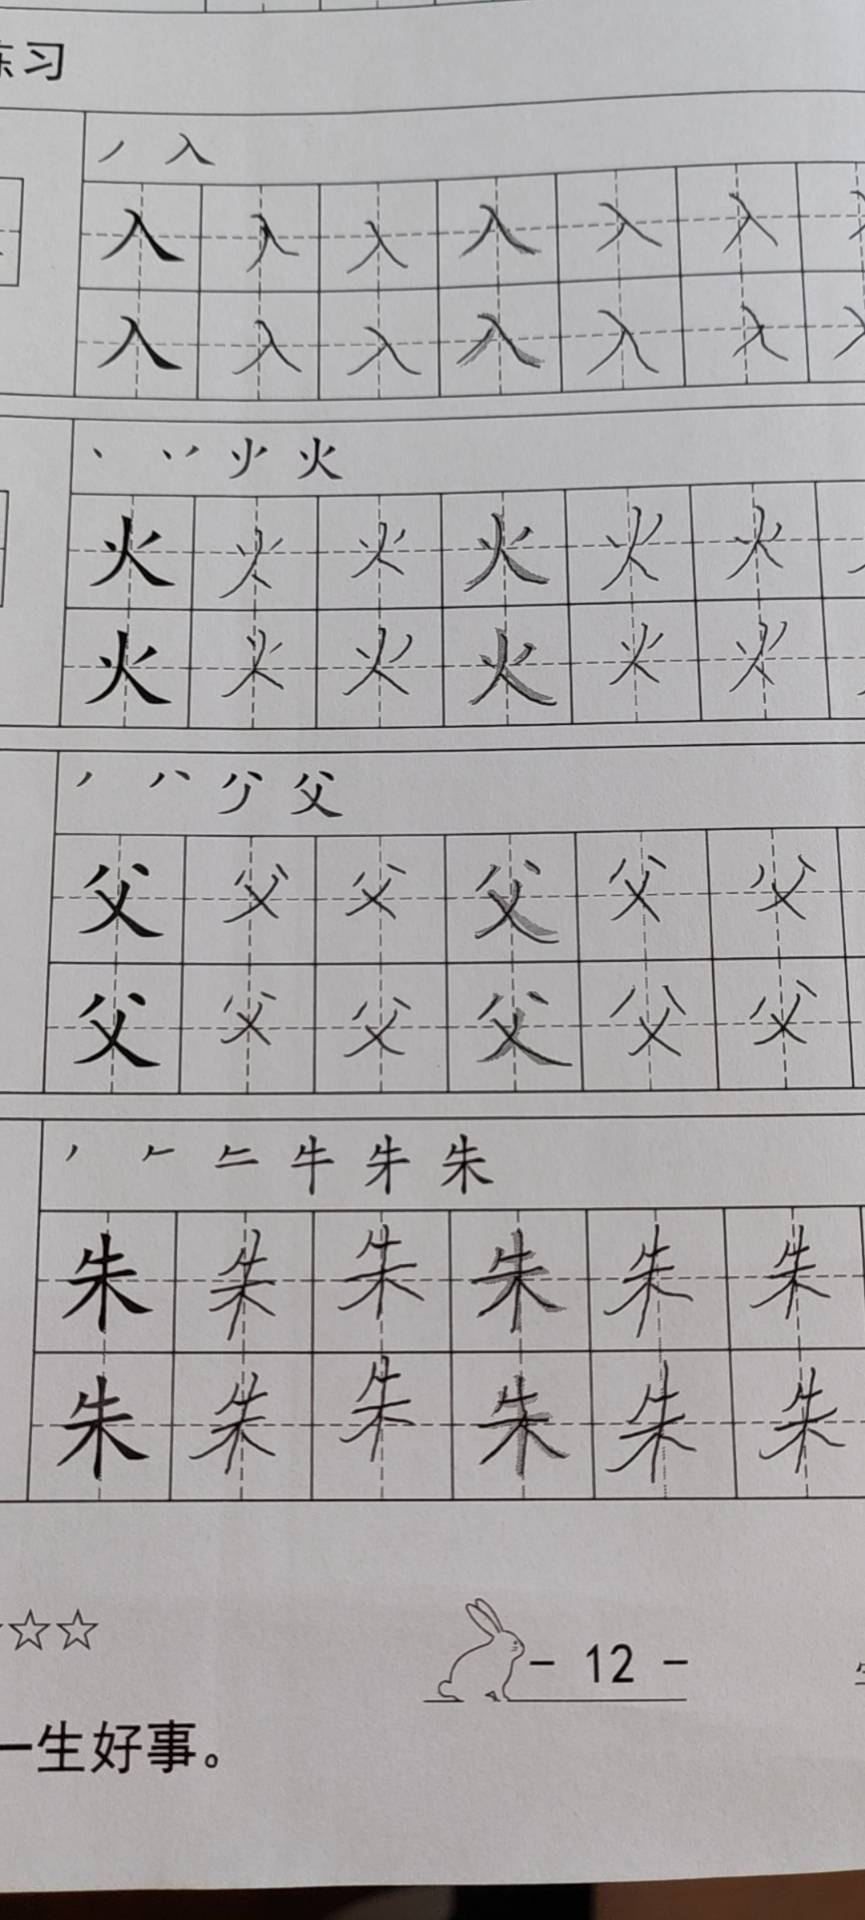 习
丿 入
入 入 入 入 入 入
入 入 入 入 入 入
火
火 火 火 火 火 火
火 火 火 火 火 火
父
父 父 父 父 父 父
父 父 父 父 父 父
牛 朱
朱 朱 朱 朱 朱 朱
朱 朱 朱 朱 朱 朱
☆☆
- 12 -
一生好事。